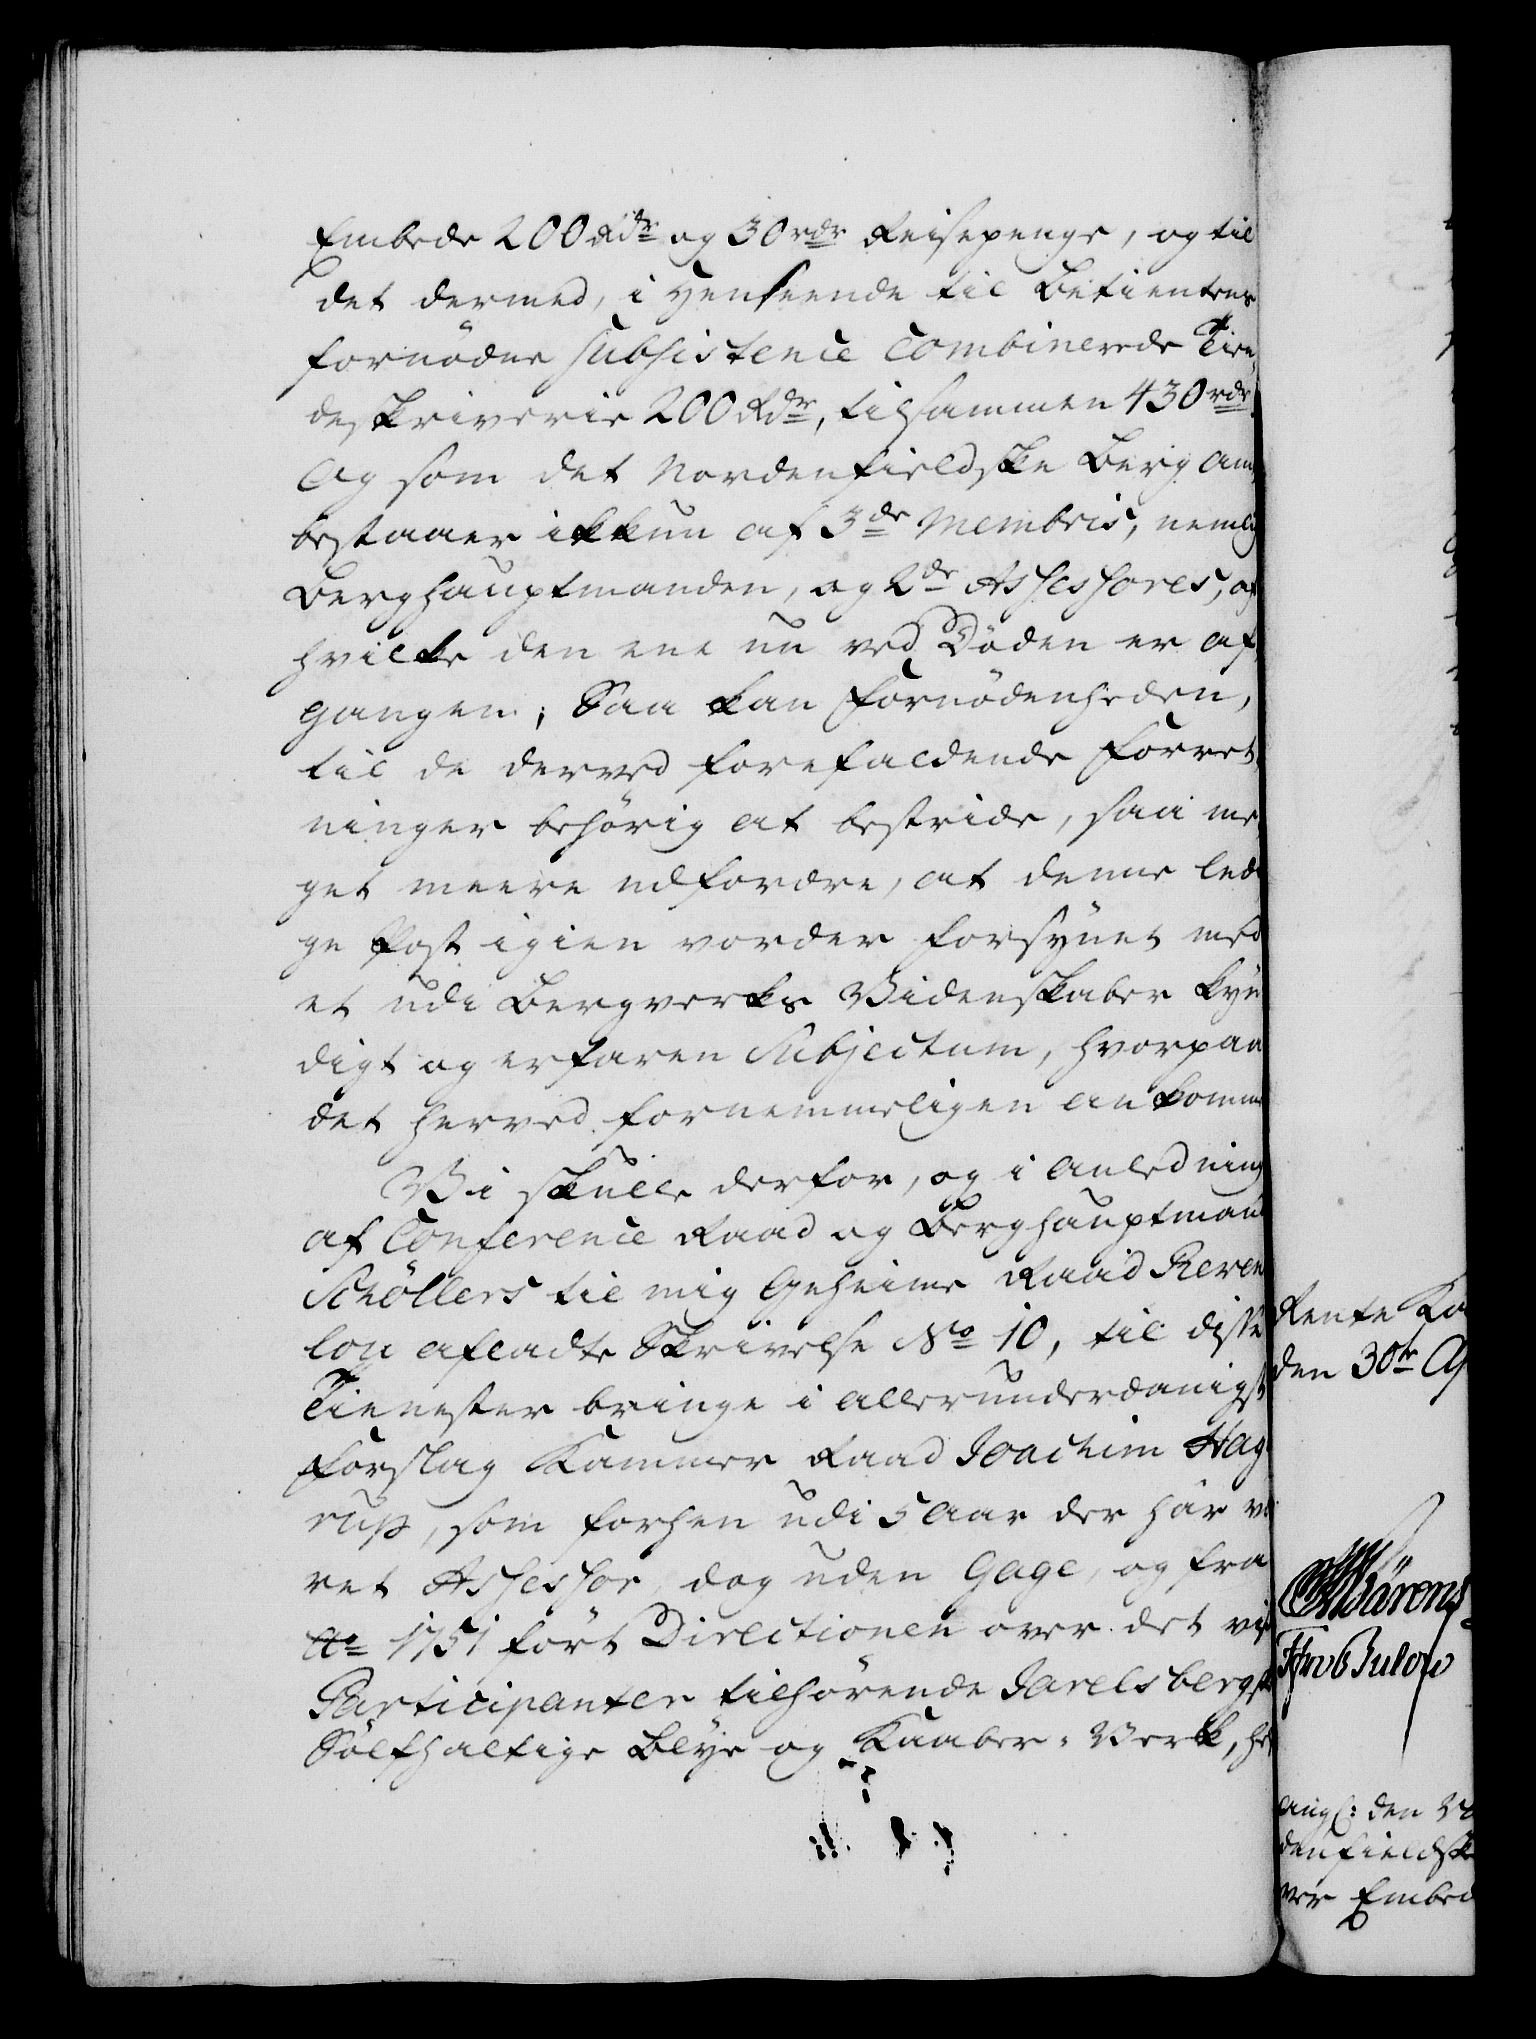 Embede 200 Rdr og 30 rdr Reisepenge, og til
det dermed, i Henseende til Betientens
fornödne Subsistence Combinerede Tien,
deskriverie 200 Rdr, tilsammen 430 rdr.
Og som det Nordenfieldske Berg Am,
bestaaer ikkun af 3de Membris, nemlig
Berghauptmanden, og 2de Assessores, af
hvilke den ene nu ved Döden er af,
gangen; Saa kan Fornödenheden,
til de derved forefaldende Forret,
ninger behörig at bestride, saa me
get meere udfordre, at denne ledi
ge Post igien vorder forsÿnet med
et udi Bergverks Videnskaber kÿn
digt og erfaren Subjectum, hvorpaa
det herved fornemmeligen ankomme
Vi skulle derfor, og i Anledning
af Conference Raad og Berghauptmand
Schöllers til mig Geheime Raad Reven
lou afladte Skrivelse No 10, til disse
Tienester bringe i allerunderdanigst
Forslag Kammer Raad Joachim Hag
rup, som forhen udi 5 Aar der har væ
ret Assessor, dog uden Gage, og fra
Ao 1751 fört Directionen over det vis
Participanter tilhörende Jarelsbergske
Sölfhaltige Blÿe og Kaaber-Verk, he
Rente Ka
den 30te Ap
Bärens
Bulow
ang: den No
denfieldsk
ver Embed